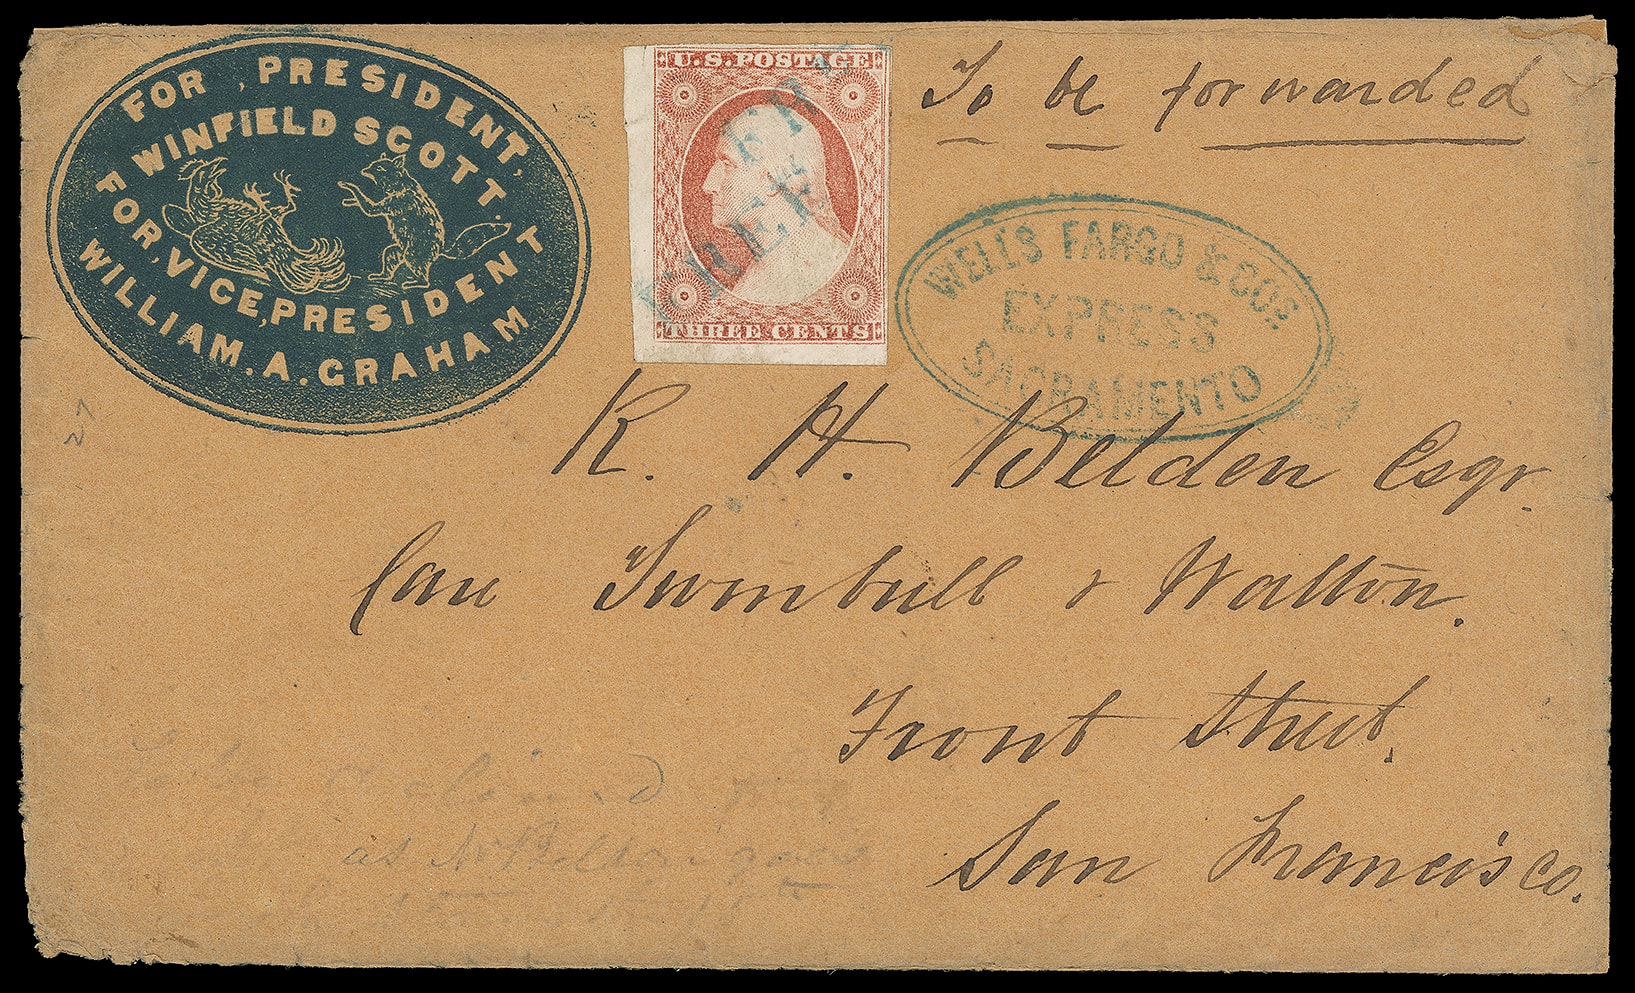 FOR, PRESIDENT,
WINFIELD SCOTT.
FOR, VICE, PRESIDENT
WILLIAM. A. GRAHAM
U.S. POSTAGE
THREE CENTS
To be forwarded
WELLS FARGO & COS.
EXPRESS
SACRAMENTO
R. H. Belden Esqr.
Care Turnbull & Walton.
Front Street.
San Francisco.
27